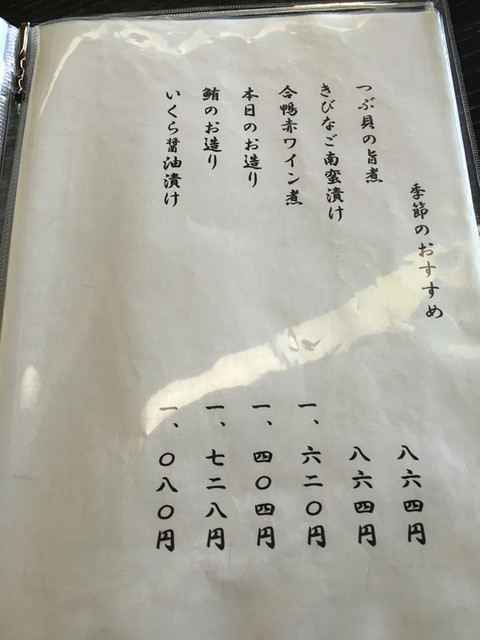 季節のおすすめ
つぶ貝の旨煮 八六四円
きびなご南蛮漬け 八六四円
合鴨赤ワイン煮 一、六二〇円
本日のお造り 一、四〇四円
鮪のお造り 一、七二八円
いくら醤油漬け 一、〇八〇円